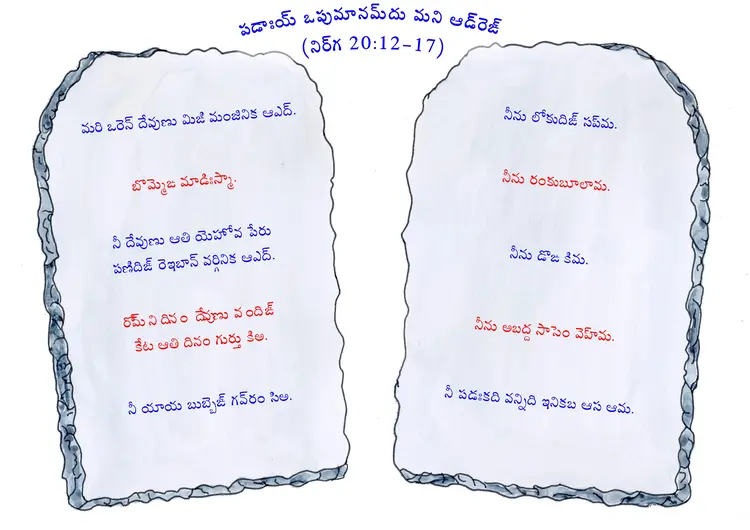 పడాఃయ్ ఒపుమానమ్‌దు మని ఆడ్‌రెఙ్
(నిర్‌గ 20:12-17)
మరి ఒరెన్ దేవుణు మిఙి మంజినిక ఆఎద్.
బొమ్మెఙ మాడిఃస్మా.
నీ దేవుణు ఆతి యెహోవ పేరు
పణిదిఙ్ రెఇబాన్ వర్గినిక ఆఎద్.
రోమ్‌ని దినం దేవుణు వందిఙ్
కేట ఆతి దినం గుర్తు కిఅ.
నీ యాయ బుబ్బెఙ్ గవ్‌రం సిఅ.
నీను లోకుదిఙ్ సప్‌మ.
నీను రంకుబూలామ.
నీను డొఙ కిమ.
నీను అబద్ద సాసెం వెహ్‌మ.
నీ పడఃకది వన్నిది ఇనికబ ఆస ఆమ.